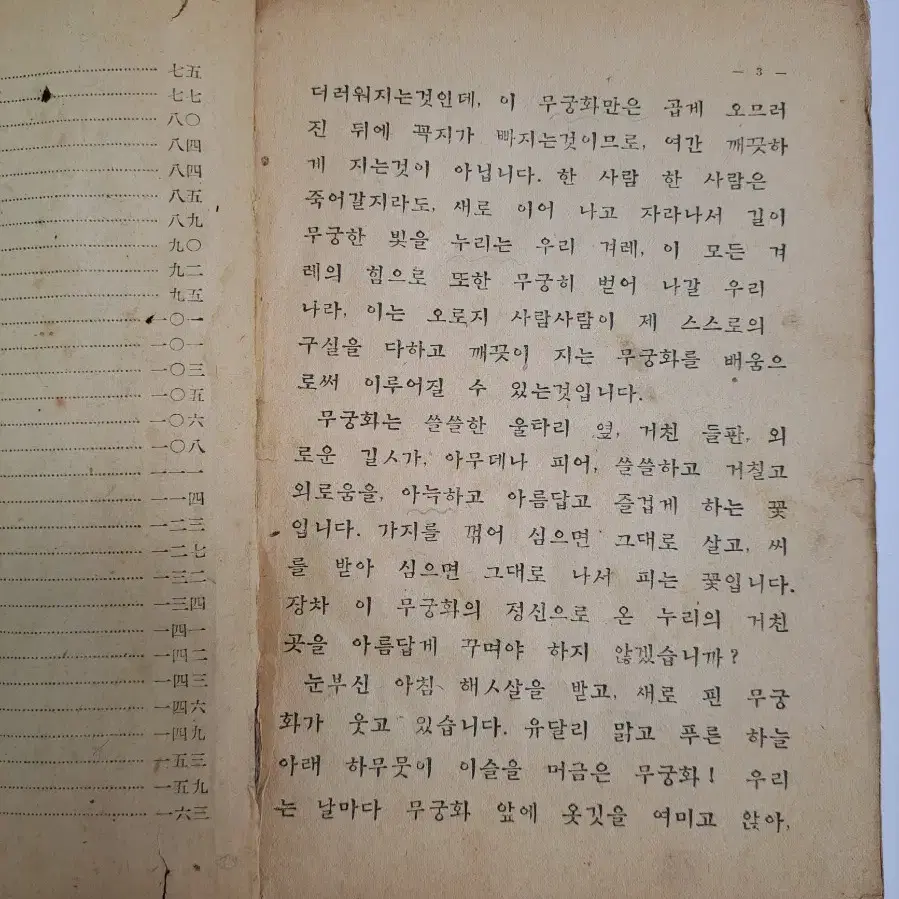 七五
七七
八〇
八四
八四
八五
八九
九〇
九二
九五
一〇一
一〇一
一〇三
一〇五
一〇六
一〇八
一一一
一一四
一二三
一二七
一三二
一三四
一四一
一四二
一四三
一四六
一四九
一五三
一五九
一六三
— 3 —
더러워지는것인데, 이 무궁화만은 곱게 오므러
진 뒤에 꼭지가 빠지는것이므로, 여간 깨끗하
게 지는것이 아닙니다. 한 사람 한 사람은
죽어갈지라도, 새로 이어 나고 자라나서 길이
무궁한 빛을 누리는 우리 겨레, 이 모든 겨
레의 힘으로 또한 무궁히 벋어 나갈 우리
나라, 이는 오로지 사람사람이 제 스스로의
구실을 다하고 깨끗이 지는 무궁화를 배움으
로써 이루어질 수 있는것입니다.
무궁화는 쓸쓸한 울타리 옆, 거친 들판, 외
로운 길ㅅ가, 아무데나 피어, 쓸쓸하고 거칠고
외로움을, 아늑하고 아름답고 즐겁게 하는 꽃
입니다. 가지를 꺾어 심으면 그대로 살고, 씨
를 받아 심으면 그대로 나서 피는 꽃입니다.
장차 이 무궁화의 정신으로 온 누리의 거친
곳을 아름답게 꾸며야 하지 않겠습니까?
눈부신 아침 해ㅅ살을 받고, 새로 핀 무궁
화가 웃고 있습니다. 유달리 맑고 푸른 하늘
아래 하무뭇이 이슬을 머금은 무궁화! 우리
는 날마다 무궁화 앞에 옷깃을 여미고 앉아,